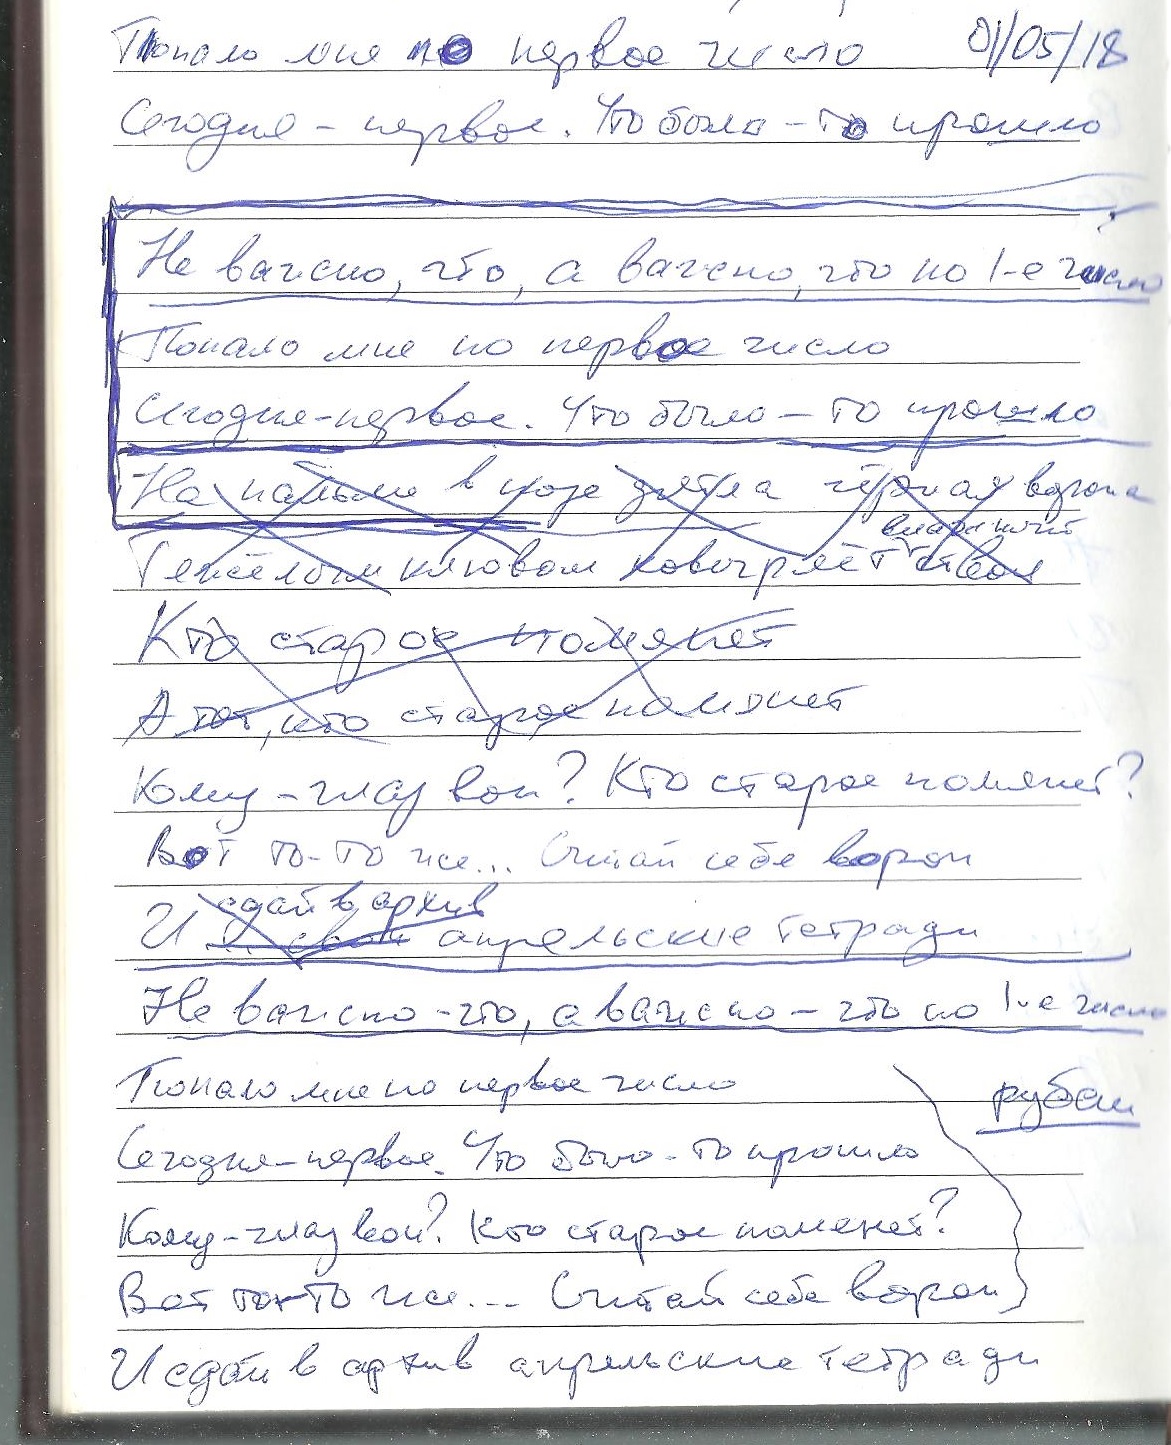 Попало мне по первое число 01/05/18
Сегодня – первое. Что было – то прошло
Не важно, что, а важно, что по 1-е число
Попало мне по первое число
Сегодня-первое. Что было – то прошло
На пальме в позе дятла чёрная ворона
Тяжёлым клювом ковыряет ствол
Кто старое помянет
А тот, кто старое помянет
Кому – глаз вон? Кто старое помянет?
Вот то-то же... Считай себе ворон
сдай в архив
И свои апрельские тетради
Не важно – что, а важно – что по 1-е число
Попало мне по первое число
рубаи
Сегодня-первое. Что было – то прошло
Кому – глаз вон? Кто старое помянет?
Вот то-то же... Считай себе ворон
И сдай в архив апрельские тетради